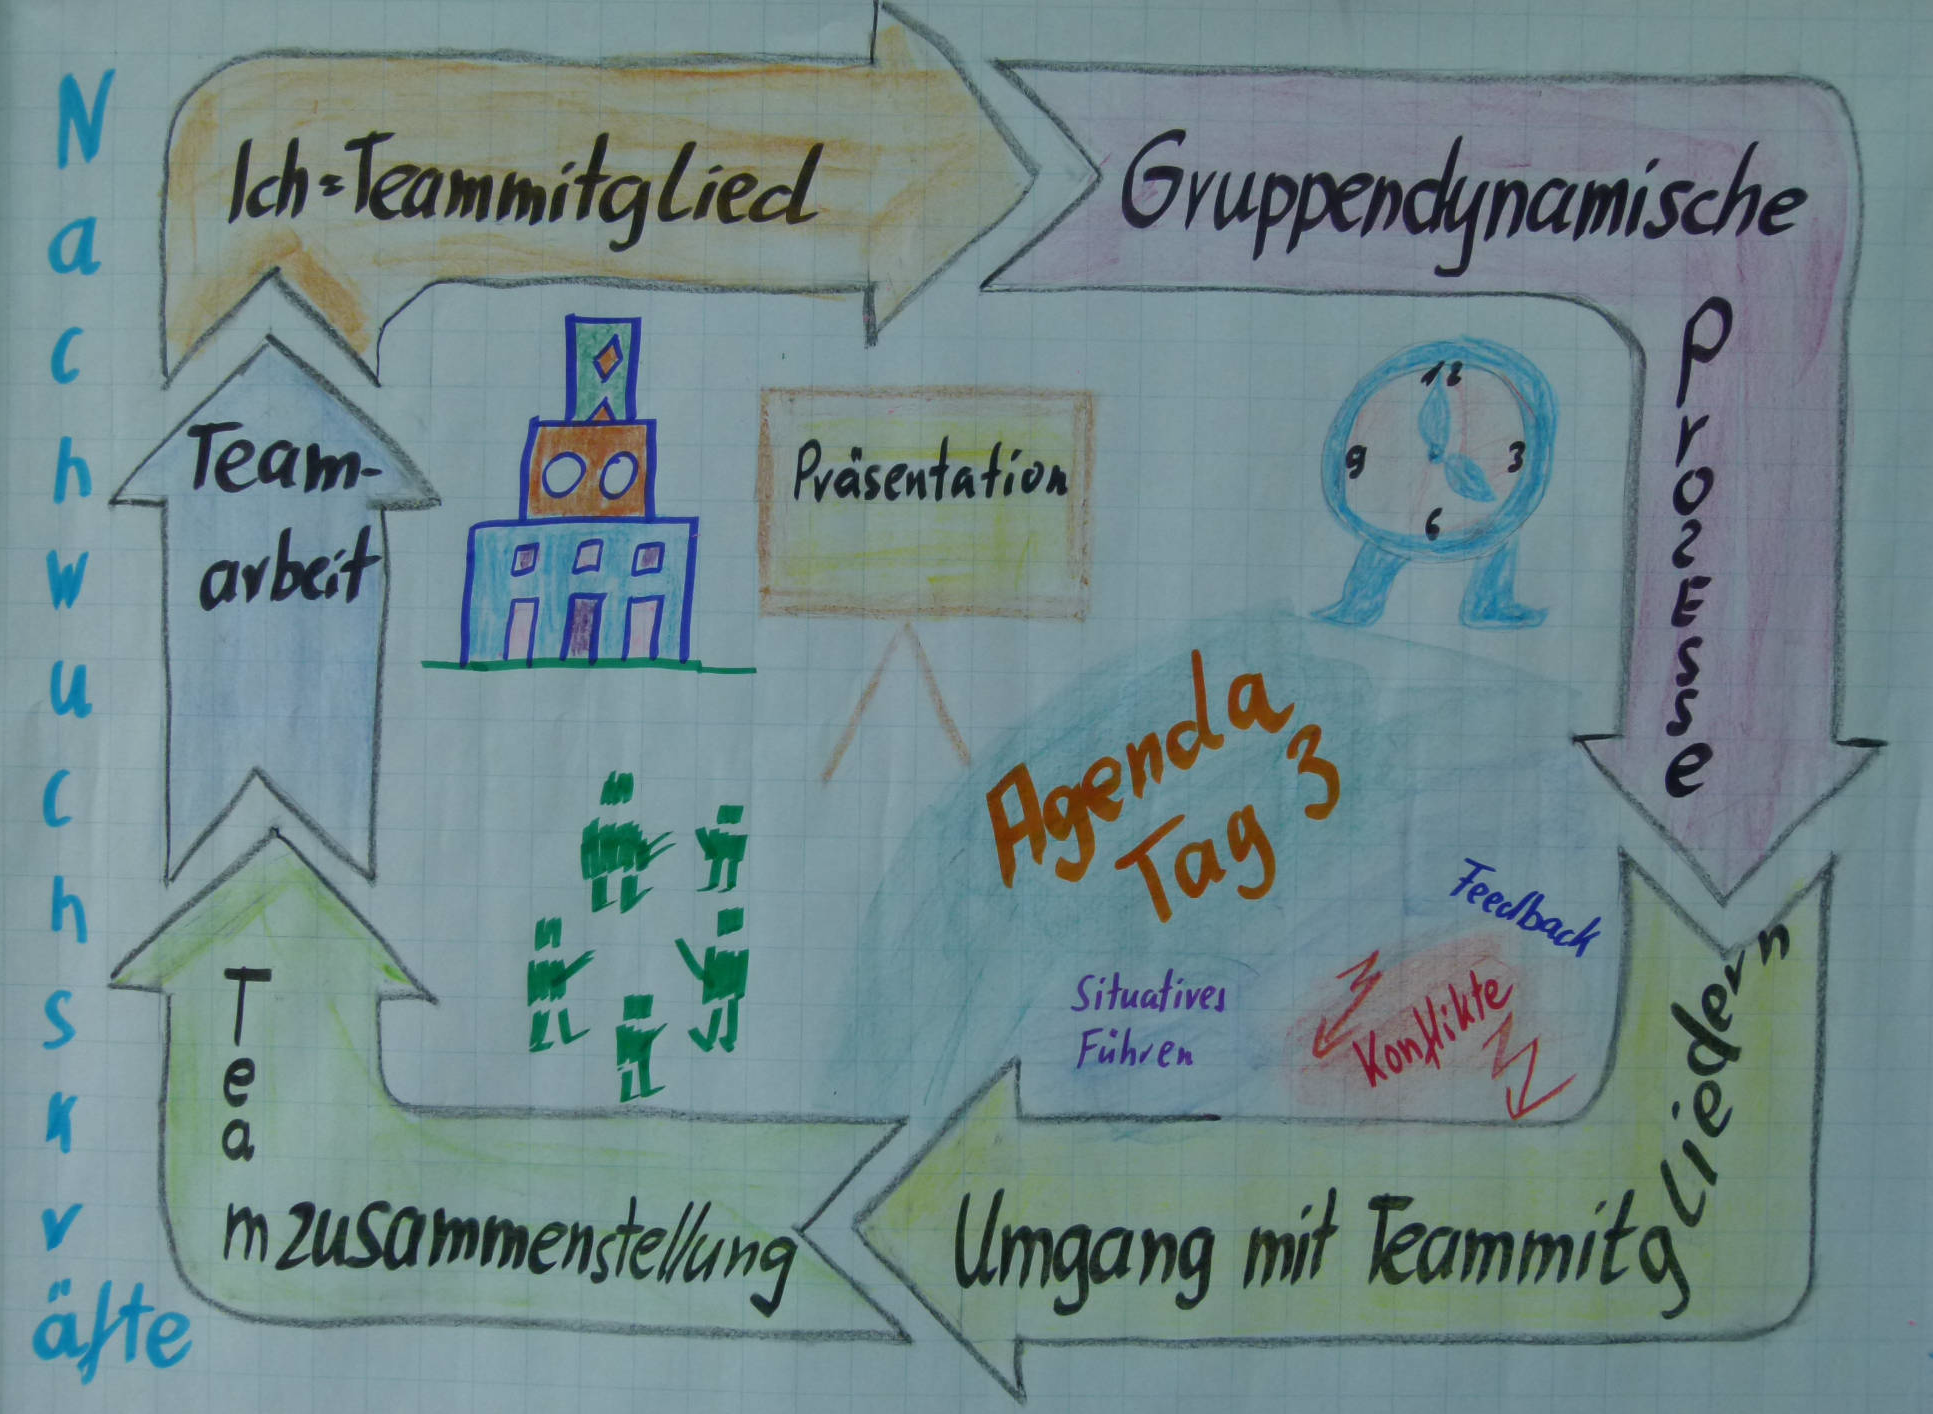 Nachwuchskräfte
Ich = Teammitglied
Gruppendynamische
Prozesse
Umgang mit Teammitgliedern
Teamzusammenstellung
Team-
arbeit
Präsentation
12
3
6
9
Agenda
Tag 3
Feedback
Situatives
Führen
Konflikte